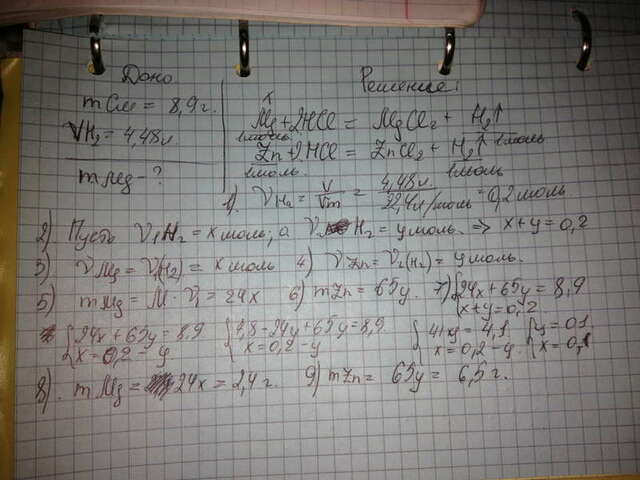 Дано
Решение:
m см = 8,9 г.
VH₂ = 4,48 л.
m Mg - ?
x
Mg + 2HCl = MgCl₂ + H₂↑
1моль. 1моль
Zn + 2HCl = ZnCl₂ + H₂↑
1моль. 1моль
1). νH₂ = V/Vm = 4,48л./22,4л/моль = 0,2 моль
2) Пусть ν₁H₂ = x моль; а ν H₂ = y моль. => x+y = 0,2
3) νMg = ν(H₂) = x моль 4) νZn = ν₂(H₂) = y моль.
5) mMg = M · ν₁ = 24x 6) mZn = 65y. 7) {24x + 65y = 8,9
{x + y = 0,2
{24x + 65y = 8,9 {4,8 - 24y + 65y = 8,9 {41y = 4,1 {y = 0,1
{x = 0,2 - y {x = 0,2 - y {x = 0,2 - y. {x = 0,1
8). m Mg = 24x = 2,4 г. 9) mZn = 65y = 6,5 г.